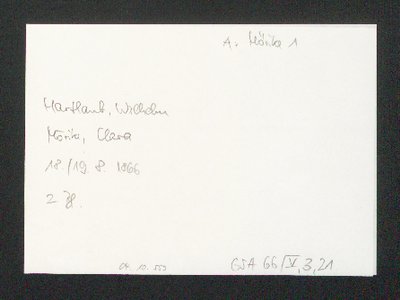 A: Mörike 1
Hartlaub, Wilhelm
Mörike, Clara
18./19. 8. 1866
2
GSA 66/IV,3,21